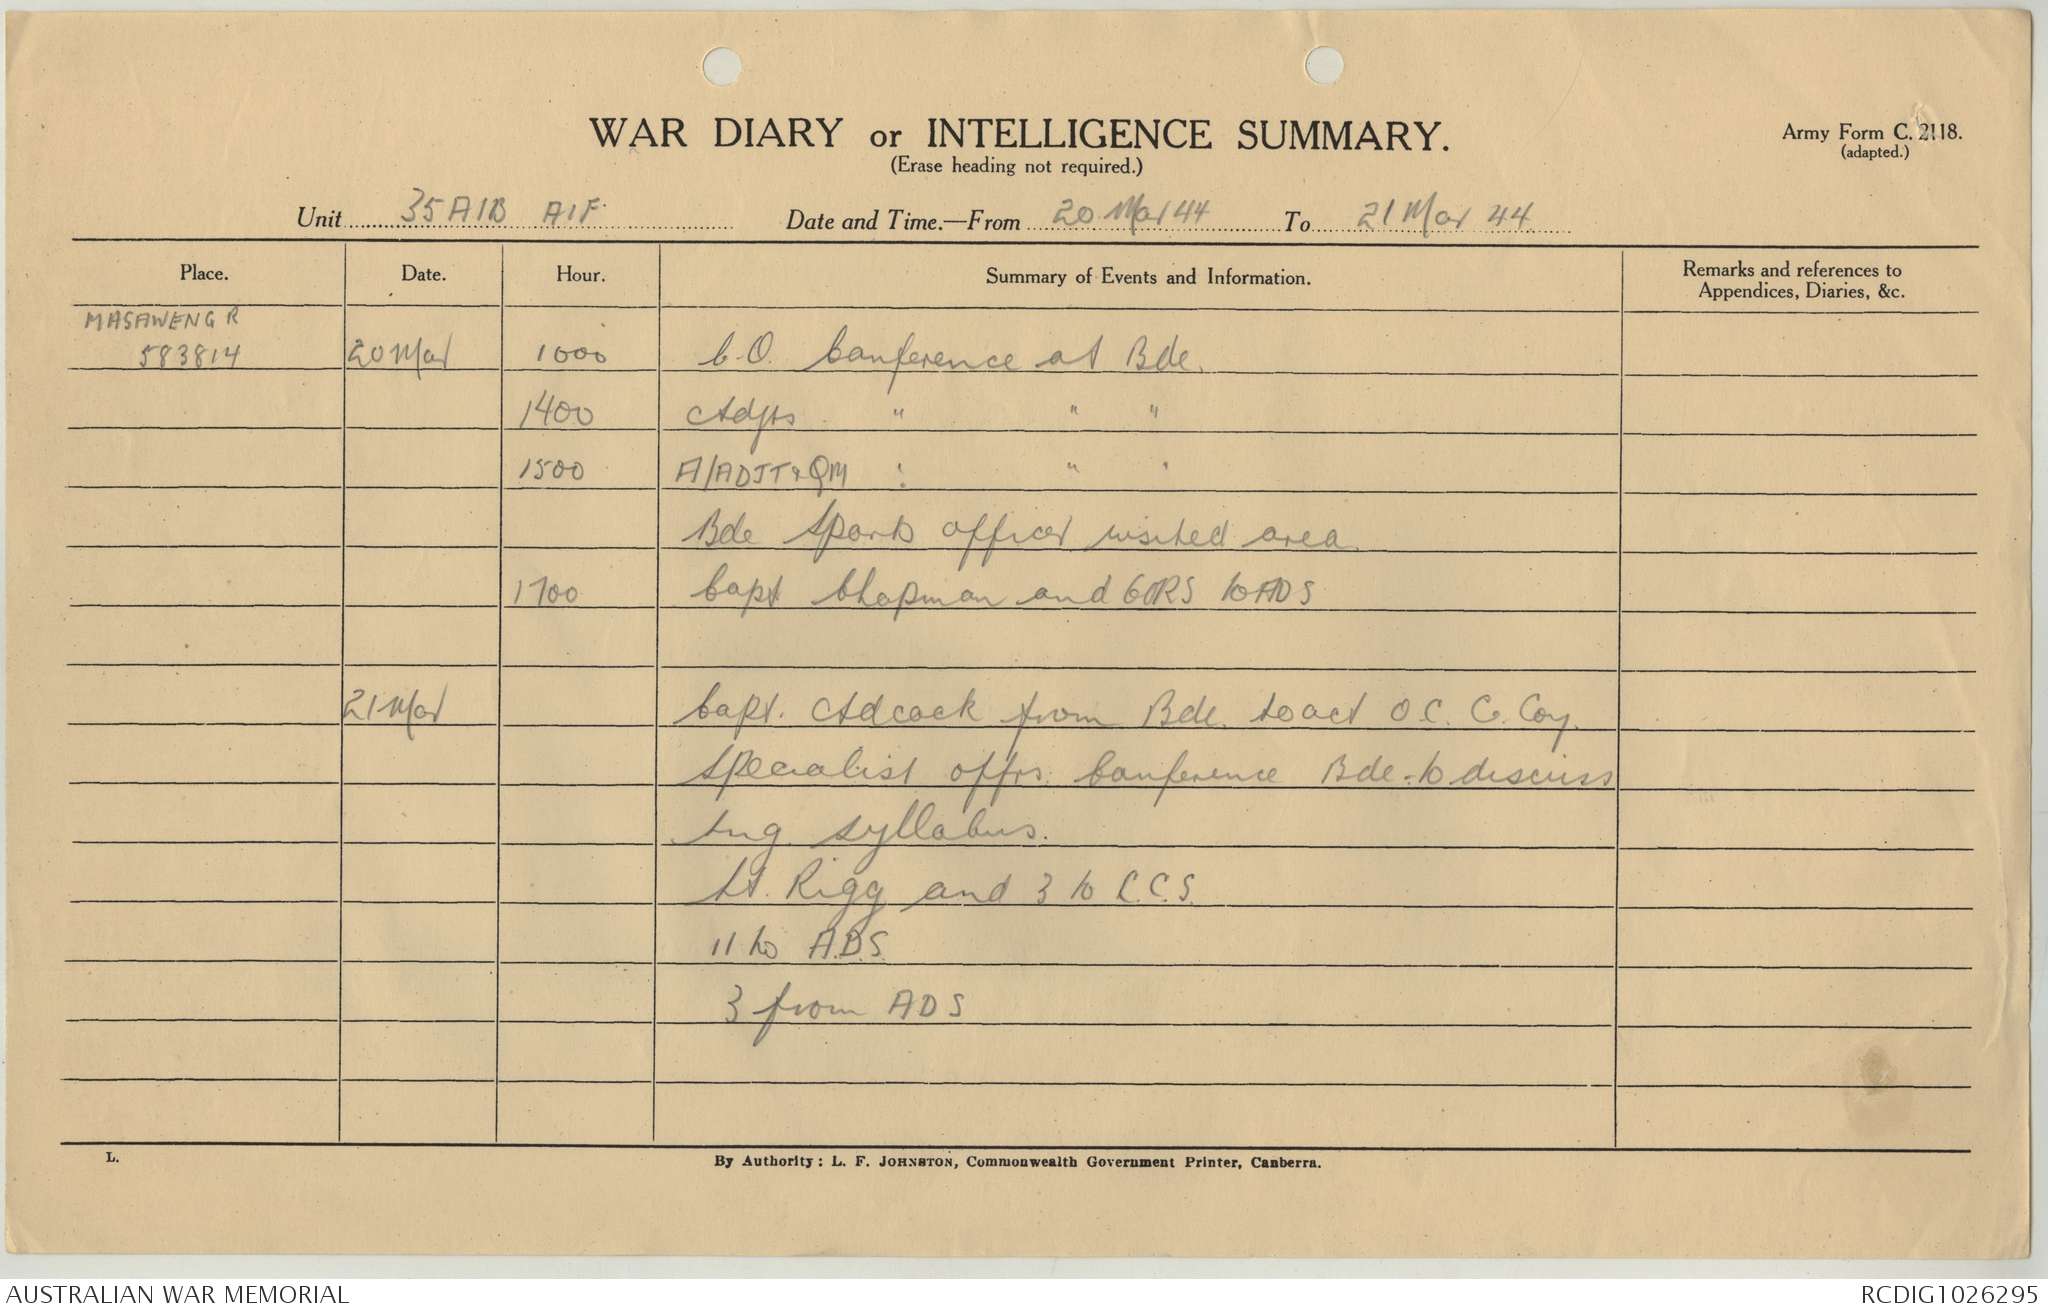 WAR DIARY or INTELLIGENCE SUMMARY.
(Erase heading not required.)
Army Form C. 2118.
(adapted.)
Unit 35 AIB AIF. Date and Time.—From 20 Mar 44 To 21 Mar 44
Place. Date. Hour. Summary of Events and Information. Remarks and references to Appendices, Diaries, &c.
MASAWENG R
583814 20 Mar 1000 C.O. Conference at Bde.
1400 Adjts " " "
1500 A/ADJT & QM : " "
Bde Sports officer visited area
1700 Capt Chapman and 6 ORS to ADS
21 Mar Capt. Adcock from Bde. to act O.C. C. Coy.
Specialist offrs. Conference Bde. to discuss
tng syllabus.
Lt. Rigg and 3 to C.C.S.
11 to A.D.S.
3 from ADS
L.
By Authority: L. F. JOHNSTON, Commonwealth Government Printer, Canberra.
AUSTRALIAN WAR MEMORIAL RCDIG1026295